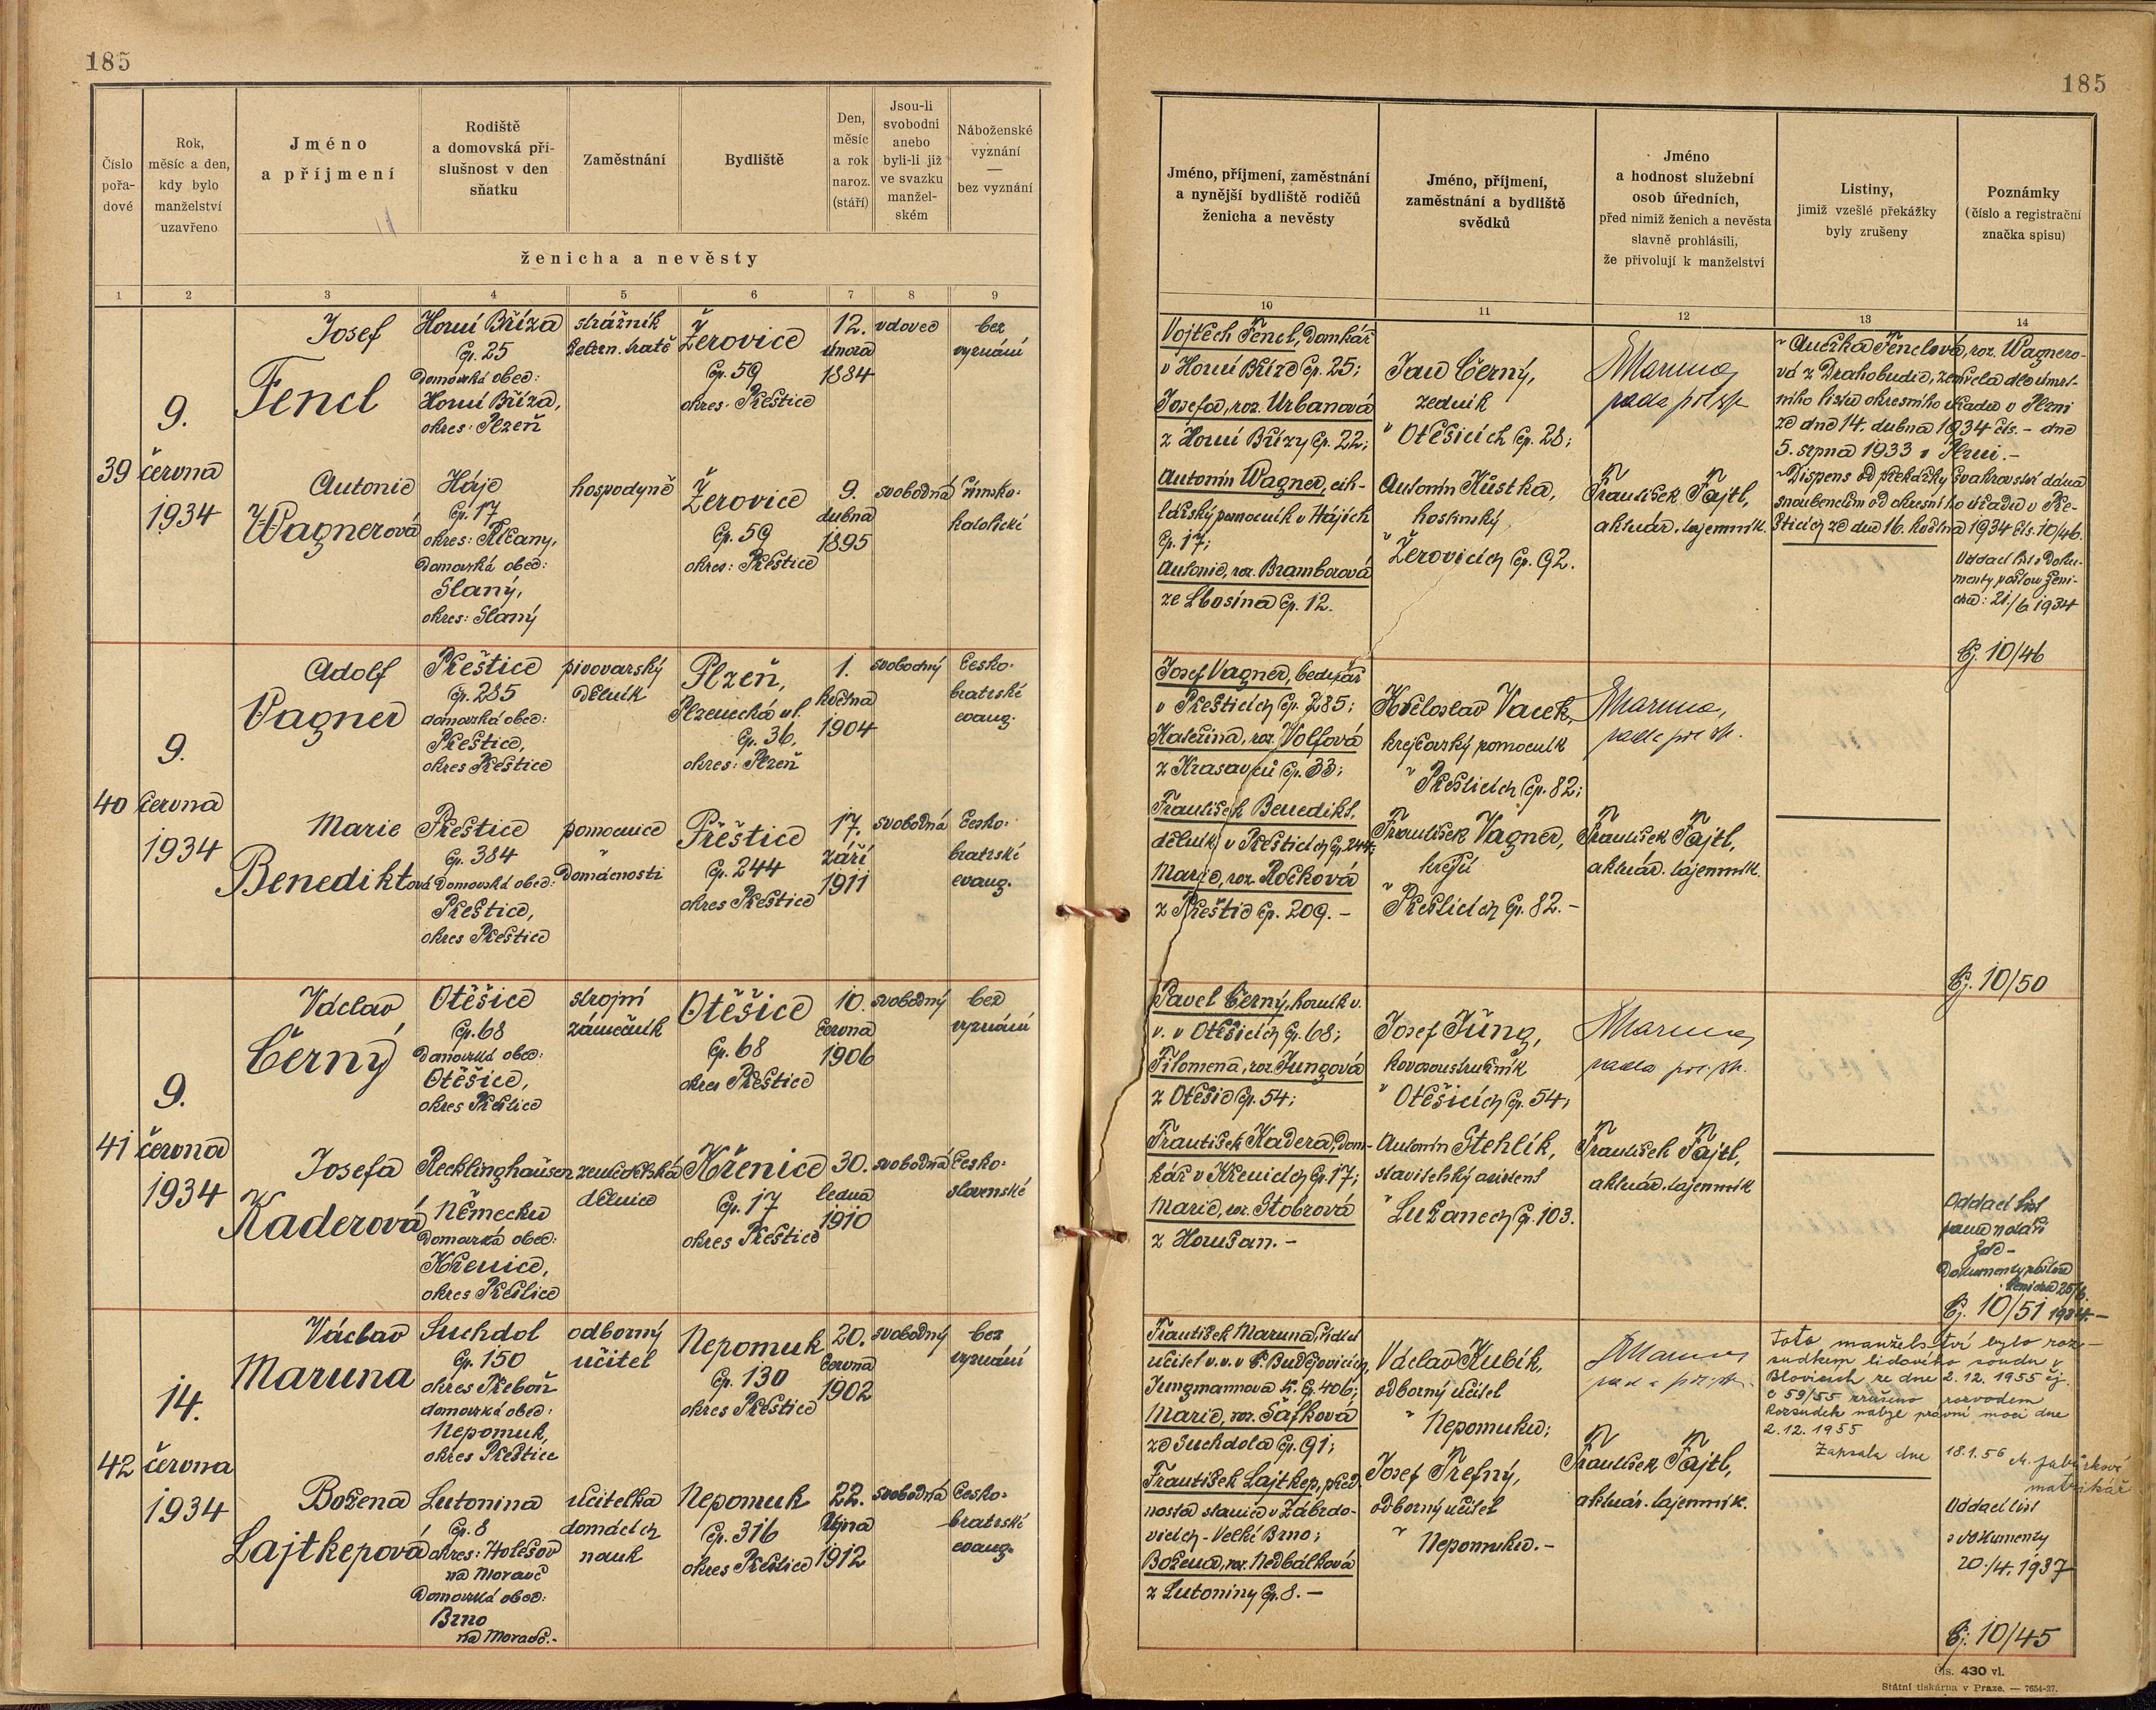 185
Číslo
pořa-
dové
Rok,
měsíc a den,
kdy bylo
manželství
uzavřeno
Jméno
a příjmení
Rodiště
a domovská pří-
slušnost v den
sňatku
Zaměstnání
Bydliště
Den,
měsíc
a rok
naroz.
(stáří)
Jsou-li
svobodni
anebo
byli-li již
ve svazku
manžel-
ském
Náboženské
vyznání
—
bez vyznání
ženicha a nevěsty
1 2 3 4 5 6 7 8 9
39
9.
června
1934
Josef
Fencl
Horní Bříza
čp. 25
domovská obec:
Horní Bříza,
okres: Plzeň
strážník
železn. tratě
Žerovice
čp. 59
okres: Přeštice
12.
února
1884
vdovec
bez
vyznání
Antonie
Wagnerová
Háje
čp. 17
okres: Říčany,
domovská obec:
Slaný,
okres: Slaný
hospodyně
Žerovice
čp. 59
okres: Přeštice
9.
dubna
1895
svobodná
římsko-
katolické
40
9.
června
1934
Adolf
Vagner
Přeštice
čp. 285
domovská obec:
Přeštice,
okres Přeštice
pivovarský
dělník
Plzeň,
Plzenecká ul.
čp. 36,
okres: Plzeň
1.
května
1904
svobodný
česko-
bratrské
evang.
Marie
Benediktová
Přeštice
čp. 384
domovská obec:
Přeštice,
okres Přeštice
pomocnice
v
domácnosti
Přeštice
čp. 244
okres Přeštice
17.
září
1911
svobodná
česko-
bratrské
evang.
41
9.
června
1934
Václav
Černý
Otěšice
čp. 68
domovská obec:
Otěšice,
okres Přeštice
strojní
zámečník
Otěšice
čp. 68
okres Přeštice
10.
června
1906
svobodný
bez
vyznání
Josefa
Kaderová
Recklinghausen
v Německu
domovská obec:
Křenice,
okres Přeštice
zemědělská
dělnice
Křenice
čp. 17
okres Přeštice
30.
ledna
1910
svobodná
česko-
slovenské
42
14.
června
1934
Václav
Maruna
Suchdol
čp. 150
okres Třeboň
domovská obec:
Nepomuk,
okres Přeštice
odborný
učitel
Nepomuk
čp. 130
okres Přeštice
20.
června
1902
svobodný
bez
vyznání
Božena
Lajtkepová
Lutonina
čp. 8
okres: Holešov
na Moravě
domovská obec:
Brno
na Moravě.-
učitelka
domácích
nauk
Nepomuk
čp. 316
okres Přeštice
22.
října
1912
svobodná
česko-
bratrské
evang.
185
Jméno, příjmení, zaměstnání
a nynější bydliště rodičů
ženicha a nevěsty
Jméno, příjmení,
zaměstnání a bydliště
svědků
Jméno
a hodnost služební
osob úředních,
před nimiž ženich a nevěsta
slavně prohlásili,
že přivolují k manželství
Listiny,
jimiž vzešlé překážky
byly zrušeny
Poznámky
(číslo a registrační
značka spisu)
10 11 12 13 14
Vojtěch Fencl, domkář
v Horní Bříze čp. 25;
Josefa, roz. Urbanová
z Horní Břízy čp. 22;
Antonín Wagner, cih-
lářský pomocník v Hájích
čp. 17;
Antonie, roz. Bramborová
ze Lbosína čp. 12.
Jan Černý,
zedník
v Otěšicích čp. 28;
Antonín Kůstka,
hostinský
v Žerovicích čp. 92.
Maruna,
rada pol. spr.
František Fajtl,
aktuár. tajemník.
Anežka Fenclová, roz. Wagnero-
vá z Drahobudic, zemřela dle úmrt-
ního listu okresního úřadu v Plzni
ze dne 14. dubna 1934 čís. - dne
5. srpna 1933 v Plzni.-
Dispens od překážky švakrovství dána
snoubencům od okresního úřadu v Pře-
šticích ze dne 16. května 1934 čís. 10/46.
Oddací list i doku-
menty poštou ženi-
cha: 21./6 1934
Čj. 10/46
Josef Vagner, bednář
v Přešticích čp. 285;
Kateřina, roz. Volfová
z Krasavců čp. 33;
František Benedikt,
dělník v Přešticích čp. 244;
Marie, roz. Ročková
z Přeštic čp. 209.-
Květoslav Vacek,
krejčovský pomocník
v Přešticích čp. 82;
František Vagner,
krejčí
v Přešticích čp. 82.-
Maruna,
rada pol. spr.
František Fajtl,
aktuár. tajemník.
Čj. 10/50
Pavel Černý, horník v.
v. v Otěšicích čp. 68;
Filomena, roz. Jungová
z Otěšic čp. 54;
František Kadera, dom-
kář v Křenicích čp. 17;
Marie, roz. Štobrová
z Horušan.-
Josef Jüng,
kovosoustružník
v Otěšicích čp. 54;
Antonín Stehlík,
stavitelský asistent
v Lužanech čp. 103.
Maruna
rada pol. spr.
František Fajtl,
aktuár. tajemník
Oddací list
Dokumenty poštou
ženicha 25/6.
1934.-
Čj. 10/51
František Maruna, řídící
učitel v.v. v Č. Budějovicích,
Jungmannova tř. čp. 406;
Marie, roz. Šafková
ze Suchdola čp. 91;
František Lajtkep, před-
nosta stanice v Zábrdo-
vicích - Velké Brno;
Božena, roz. Nedbálková
z Lutoniny čp. 8.-
Václav Kubík,
odborný učitel
v Nepomuku;
Josef Třefný,
odborný učitel
v Nepomuku.-
Maruna
rada pol. spr.
František Fajtl,
aktuár. tajemník.
Toto manželství bylo roz-
sudkem lidového soudu v
Blovicích ze dne 2. 12. 1955 čj.
C 59/55 zrušeno rozvodem
Rozsudek nabyl právní moci dne
2. 12. 1955
Zapsala dne 18.1.56
matrikář
Oddací list
i dokumenty
20./4. 1937
Čj. 10/45
Čís. 430 vl.
Státní tiskárna v Praze. — 7654-27.